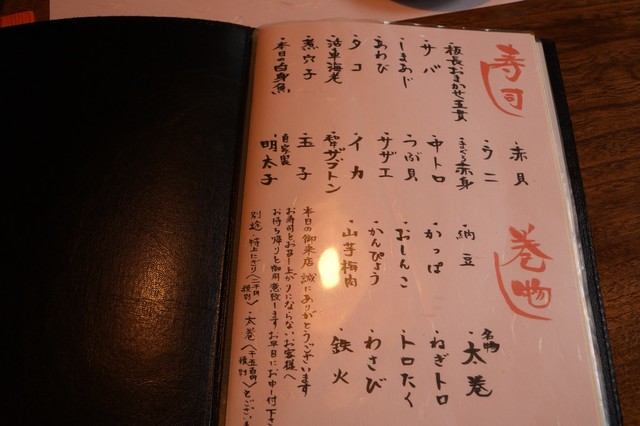 寿司
・板長おまかせ五貫
・サバ
・しまあじ
・あわび
・タコ
・活車海老
・煮穴子
・本日の白身魚
・赤貝
・ウニ
・まぐろ赤身
・中トロ
・つぶ貝
・サザエ
・イカ
・ザブトン
・玉子
自家製
明太子
巻物
・納豆
・かっぱ
・おしんこ
・かんぴょう
・山芋梅肉
名物
太巻
・ねぎトロ
・トロたく
・わさび
・鉄火
本日の御来店誠にありがとうございます
お寿司をお召し上がりにならないお客様へ
お持ち帰りも御用意致します お早目にお申し付け下さ
別途・特上にぎり・太巻